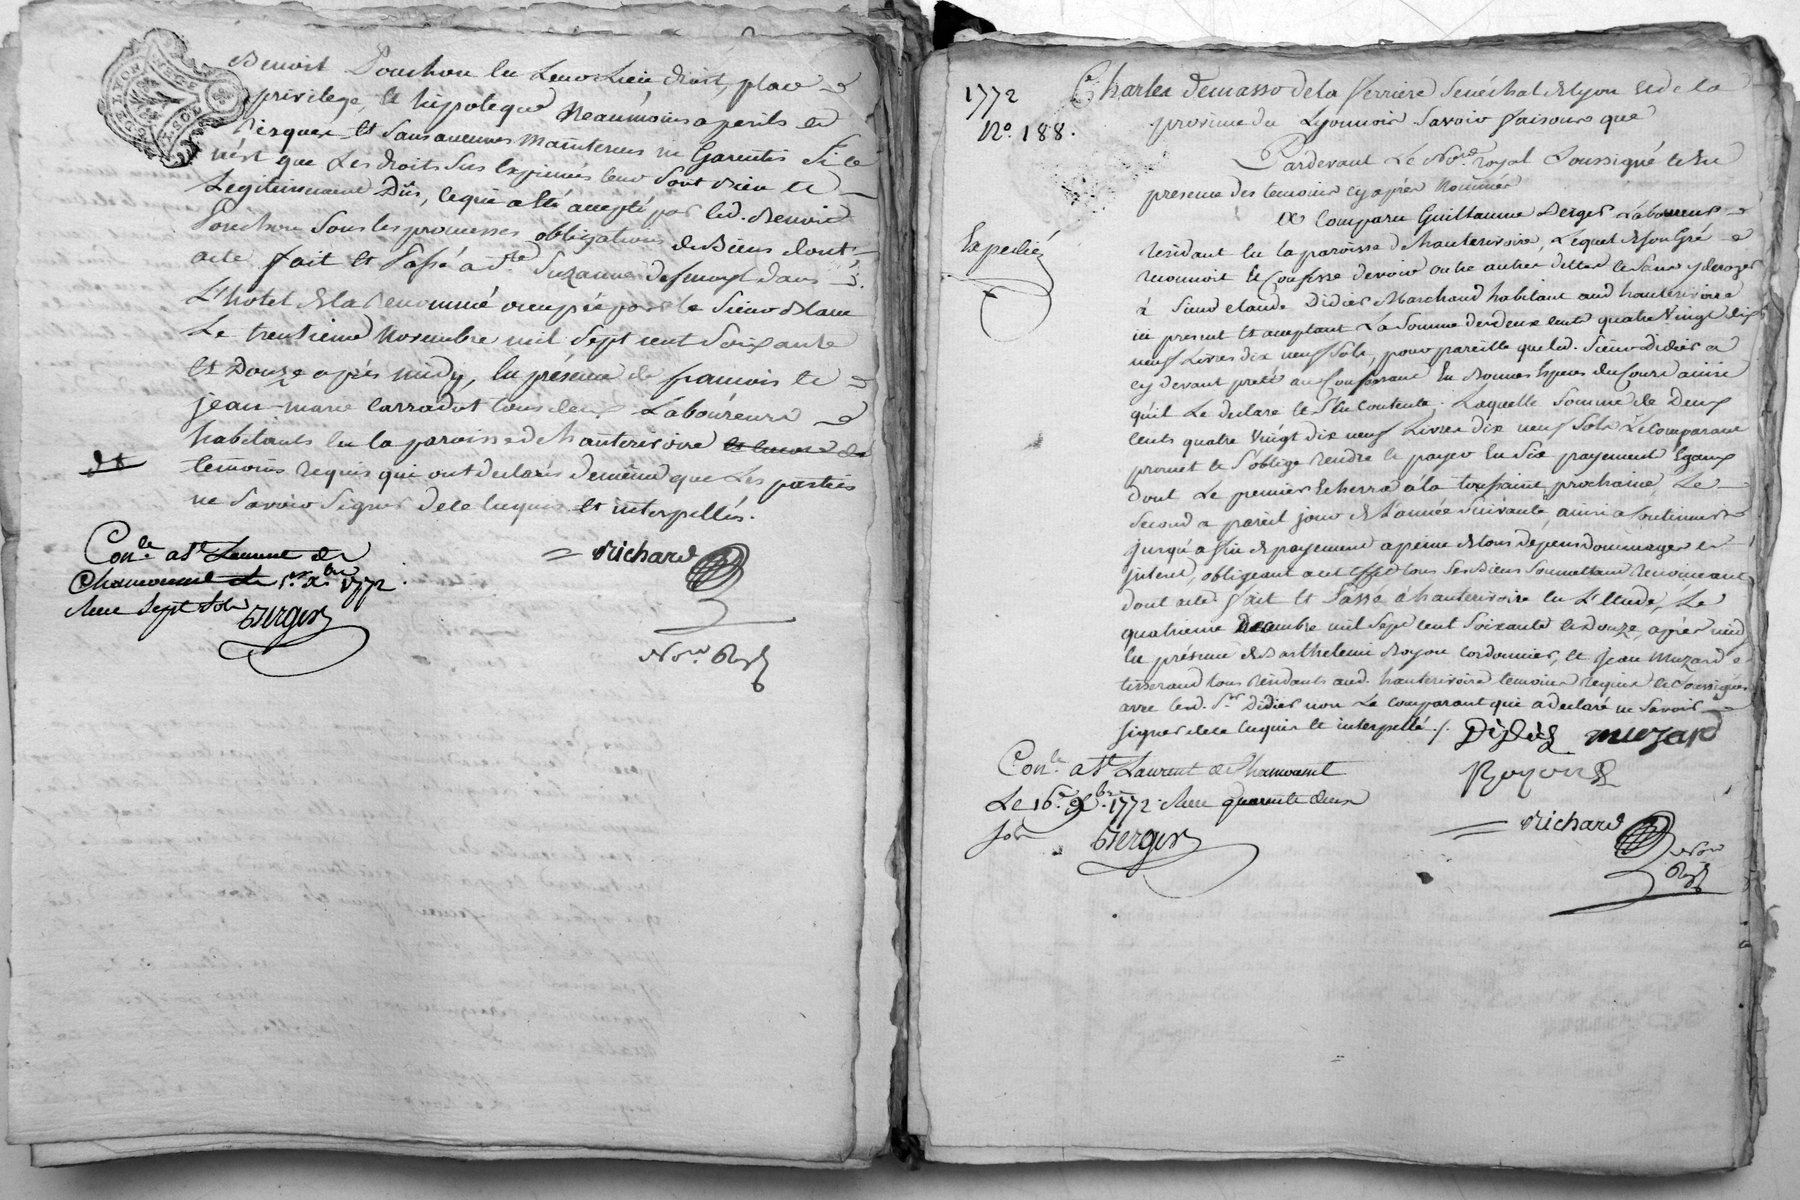 Benoist Ponchon en leur lieu, droit, place
privilege, et hipoteque Neaumoins a perils et
risques et sans aucunes maintenus ne Garentis si ce
n'est que les droits sus exprimés leur sont bien et
Legitimement Dûs, ce qui a été accepté par led. Benoist
Ponchon sous les promesses obligations de Biens dont
acte fait et Passé a Ste Suzanne dans
L'hotel de la Renommé occupée par le Sieur Blanc
Le trentieme Novembre mil sept cent Soixante
et Douze après midy, en présence de francois et
jean-marie tous deux Laboureurs
habitants en la paroisse d'hauterivoire
temoins requis qui ont declarés de même que Les parties
ne savoir signer de ce enquis et interpellés.
Conlé a St Laurent de
Chamousset le 1er Xbre 1772
Reçu sept sols
Berger
Richard
Nore Royl
1772
No. 188.
Expedié
Charles demasso de la ferriere Senéchal de Lyon et de la
province du Lyonnois Savoir faisons que
Pardevant Le Nore royal Soussigné et En
presence des temoins cy après Nommés
a Comparu Guillaume Berger Laboureur
résidant en la paroisse d'hauterivoire, Lequel de son Gré
reconnoit et Confesse devoir outre autres dettes et sans y deroger
à Sieur claude Didier Marchand habitant aud hauterivoire
ici present et acceptant La somme de deux cents quatre vingt dix
neuf Livres dix neuf sols, pour pareille que led. Sieur Didier a
cy devant preté au Confessant En Bonnes Especes du Cours ainsi
qu'il Le declare et s'En Contente. Laquelle somme de Deux
cents quatre Vingt dix neuf Livres dix neuf sols Le Comparant
promet et s'oblige rendre et payer En Six payement Egaux
dont Le premier Echerra à la toussaint prochaine, Le
second a pareil jour de L'année suivante, ainsi a Continuer
jusqu'a fin de payement a peine de tous depens dommages et
interet, obligeant a cet Effet tous ses Biens soumettant renoncant
dont acte fait et Passé à hauterivoire en L'Etude, Le
quatrieme Decembre mil Sept cent Soixante et douze, après midy
En présence de Barthelemi Royon Cordonnier, et Jean Muzard
tisserand tous résidants aud. hauterivoire temoins requis et soussignés
avec led. Sr. Didier non Le comparant qui a declaré ne savoir
signer de ce enquis et interpellé ./.
Didier muzard
Royon
Conlé a St Laurent de Chamousset
Le 16e Xbre 1772 Reçu quarante deux
sols
Berger
Richard
Nore
Royl